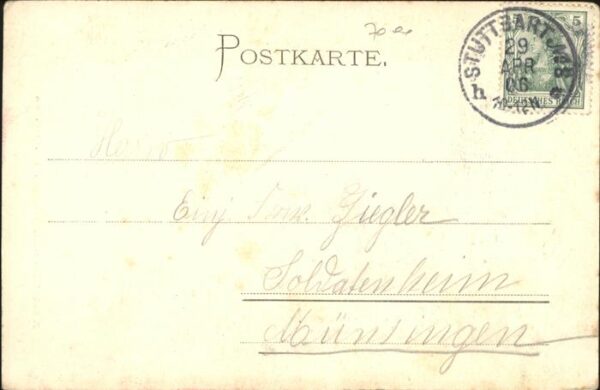 70
POSTKARTE.
STUTTGART
29
APR
06
h
5
DEUTSCHES REICH
Herrn
Einj Ziegler
Soldatenheim
Münsingen